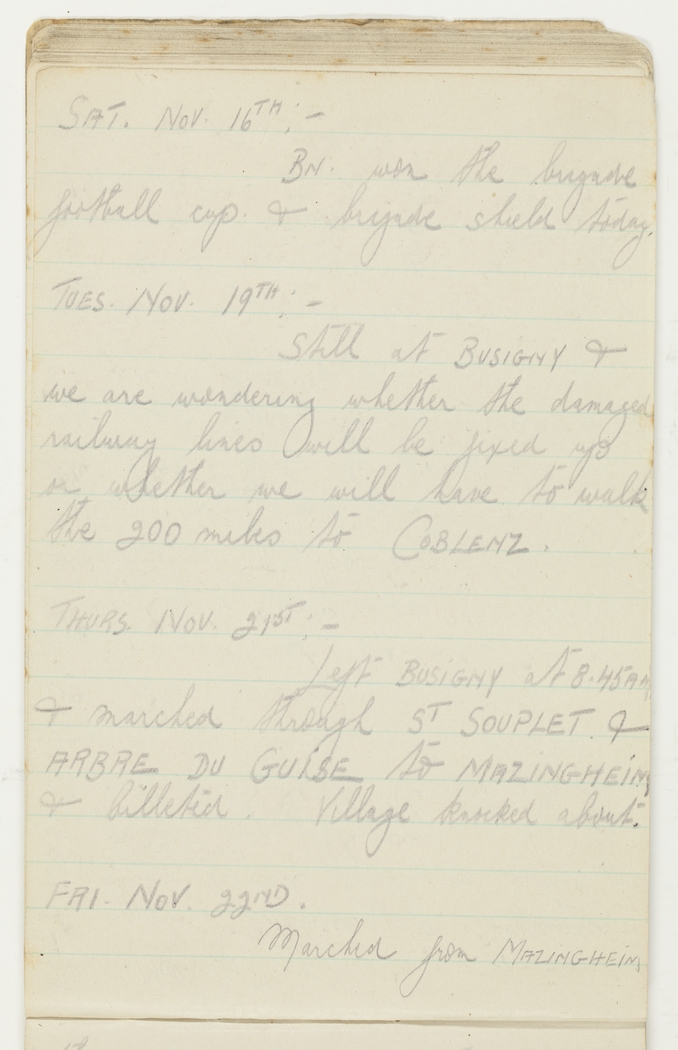 SAT. NOV. 16TH:-
BN. won the brigade
football cup. & brigade shield today.
TUES. NOV. 19TH:-
Still at BUSIGNY &
we are wondering whether the damaged
railway lines will be fixed up
or whether we will have to walk
the 200 miles to COBLENZ.
THURS. NOV. 21ST:-
Left BUSIGNY at 8.45AM
& marched through ST SOUPLET. &
ARBRE DU GUISE to MAZINGHEIM
& billeted. Village knocked about.
FRI. NOV. 22ND.
Marched from MAZINGHEIM